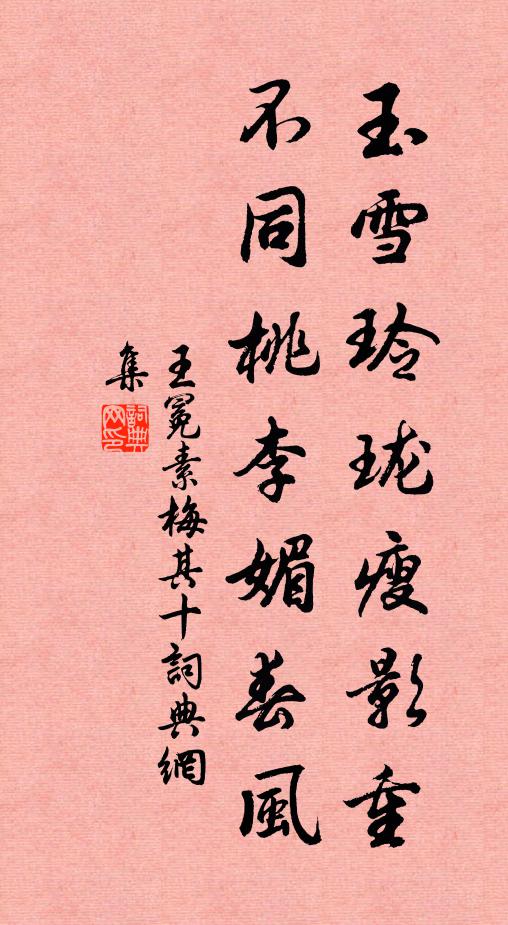 玉雪玲珑瘦影重
不同桃李媚春風
王冕素梅其十詞典網
集
詞典网印